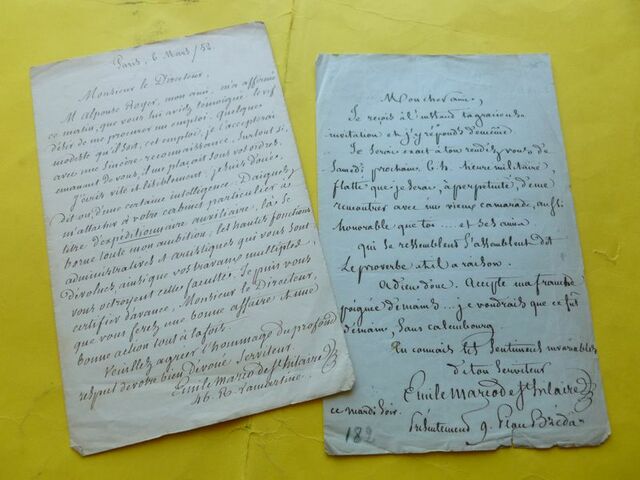 Paris, 6 Mars / 52.
Monsieur le Directeur,
M. Alponse Royer, mon ami, m'a affirmé
ce matin, que vous lui aviez témoigné le vif
désir de me procurer un emploi. Quelque
modeste qu'il soit, cet emploi, je l'accepterai
avec une sincère reconnaissance, surtout si,
émanant de vous, il me plaçait sous vos ordres.
J'écris vite et lisiblement; je suis doué,
dit-on, d'une certaine intelligence. Daignez
m'attacher à votre cabinet particulier à
titre d'expéditionnaire auxiliaire, là se
borne toute mon ambition; les hautes fonctions
administratives et artistiques qui vous sont
dévolues, ainsi que vos travaux multipliés,
vous octroyent cette faculté. Je puis vous
certifier d'avance, Monsieur le Directeur,
que vous ferez une bonne affaire et une
bonne action tout à la fois.
Veuillez agréer l'hommage du profond
respect de votre bien dévoué serviteur
Emile Marco de St hilaire
46. R. Lamartine
Mon cher ami,
Je reçois à l'instant ta gracieuse
invitation et j'y réponds d'emblée
Je serai exact à ton rendez-vous de
Samedi prochain 6 h. heure militaire,
flatté que je serai, à perpétuité, de me
rencontrer avec un vieux camarade, aussi
honorable que toi .... et ses amis
qui se ressemblent s'assemblent dit
le proverbe et il a raison.
Adieu donc. Accepte ma franche
poignée de mains ... je voudrais que ce fut
demain, sans calembourg.
Tu connais les sentiments invariables
de ton serviteur
Emile Marco de St hilaire
ce mardi soir.
Présentement 9. Place Bréda
182